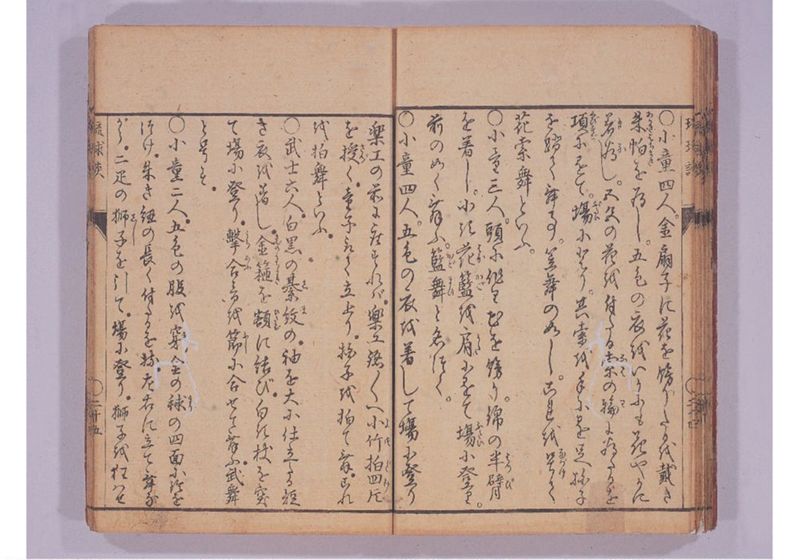 琉球談
〇小童四人。金扇子に花を飾りたるを戴き
朱帕を為し。五色の衣をいかにも花やかに
着なし。の花を付たる索の輪にしたるを
項にかけて。場に登り。其索を手に
舞の如し。
花索舞といふ。
〇小童三人。頭に作り花を飾り。錦の半臂
を着し。小き花籃を肩にかけて場に登り。
前のごとく舞ふ。籃舞と名づく。
〇小童四人。五色の衣を着して場に登り
楽工の前に座すれバ。楽工小竹拍四片
を授く。童子取て立上り。拍子を拍て舞。これ
を拍舞といふ。
〇武士六人。白黒の綦紋の紬を大に仕立たる短
き衣を着し。金箍を額に結び。白き杖を突
て場に登り。撃合を節に合せて舞ふ。武舞
と号す。
〇小童二人。五色の服を穿。金の毬の四面に鈴を
つけ。朱き紐の長く付たるを持。左右に立て舞な
がら。二疋の獅子を引て。場に登り。獅子を狂ハせ
琉球談